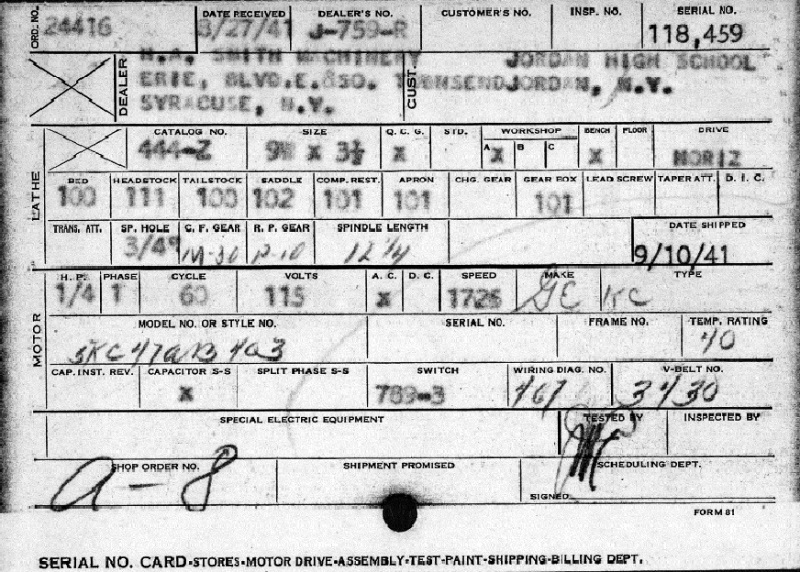 ORD. NO. 24416 DATE RECEIVED 8/27/41 DEALER'S NO. J-759-R CUSTOMER'S NO. INSP. NO. SERIAL NO. 118,459
DEALER H.A. SMITH MACHINERY CUST. JORDAN HIGH SCHOOL
ERIE, BLVD.E.&SO. TOWNSEND JORDAN, N.Y.
SYRACUSE, N.Y.
LATHE
CATALOG NO. SIZE Q. C. G. STD. WORKSHOP BENCH FLOOR DRIVE
A B C
444-Z 9" x 3½ X X X HORIZ
BED HEADSTOCK TAILSTOCK SADDLE COMP. REST. APRON CHG. GEAR GEAR BOX LEAD SCREW TAPER ATT. D. I. C.
100 111 100 102 101 101 101
TRANS. ATT. SP. HOLE C. F. GEAR R. P. GEAR SPINDLE LENGTH DATE SHIPPED
3/4" M-30 P-10 12 1/4 9/10/41
MOTOR
H. P. PHASE CYCLE VOLTS A. C. D. C. SPEED MAKE TYPE
1/4 1 60 115 X 1725 GE KC
MODEL NO. OR STYLE NO. SERIAL NO. FRAME NO. TEMP. RATING
5KC47AB403 40
CAP. INST. REV. CAPACITOR S-S SPLIT PHASE S-S SWITCH WIRING DIAG. NO. V-BELT NO.
X 789-3 467 3430
SPECIAL ELECTRIC EQUIPMENT TESTED BY INSPECTED BY
SHOP ORDER NO. SHIPMENT PROMISED SCHEDULING DEPT.
A-8
SIGNED
FORM 81
SERIAL NO. CARD-STORES-MOTOR DRIVE-ASSEMBLY-TEST-PAINT-SHIPPING-BILLING DEPT.